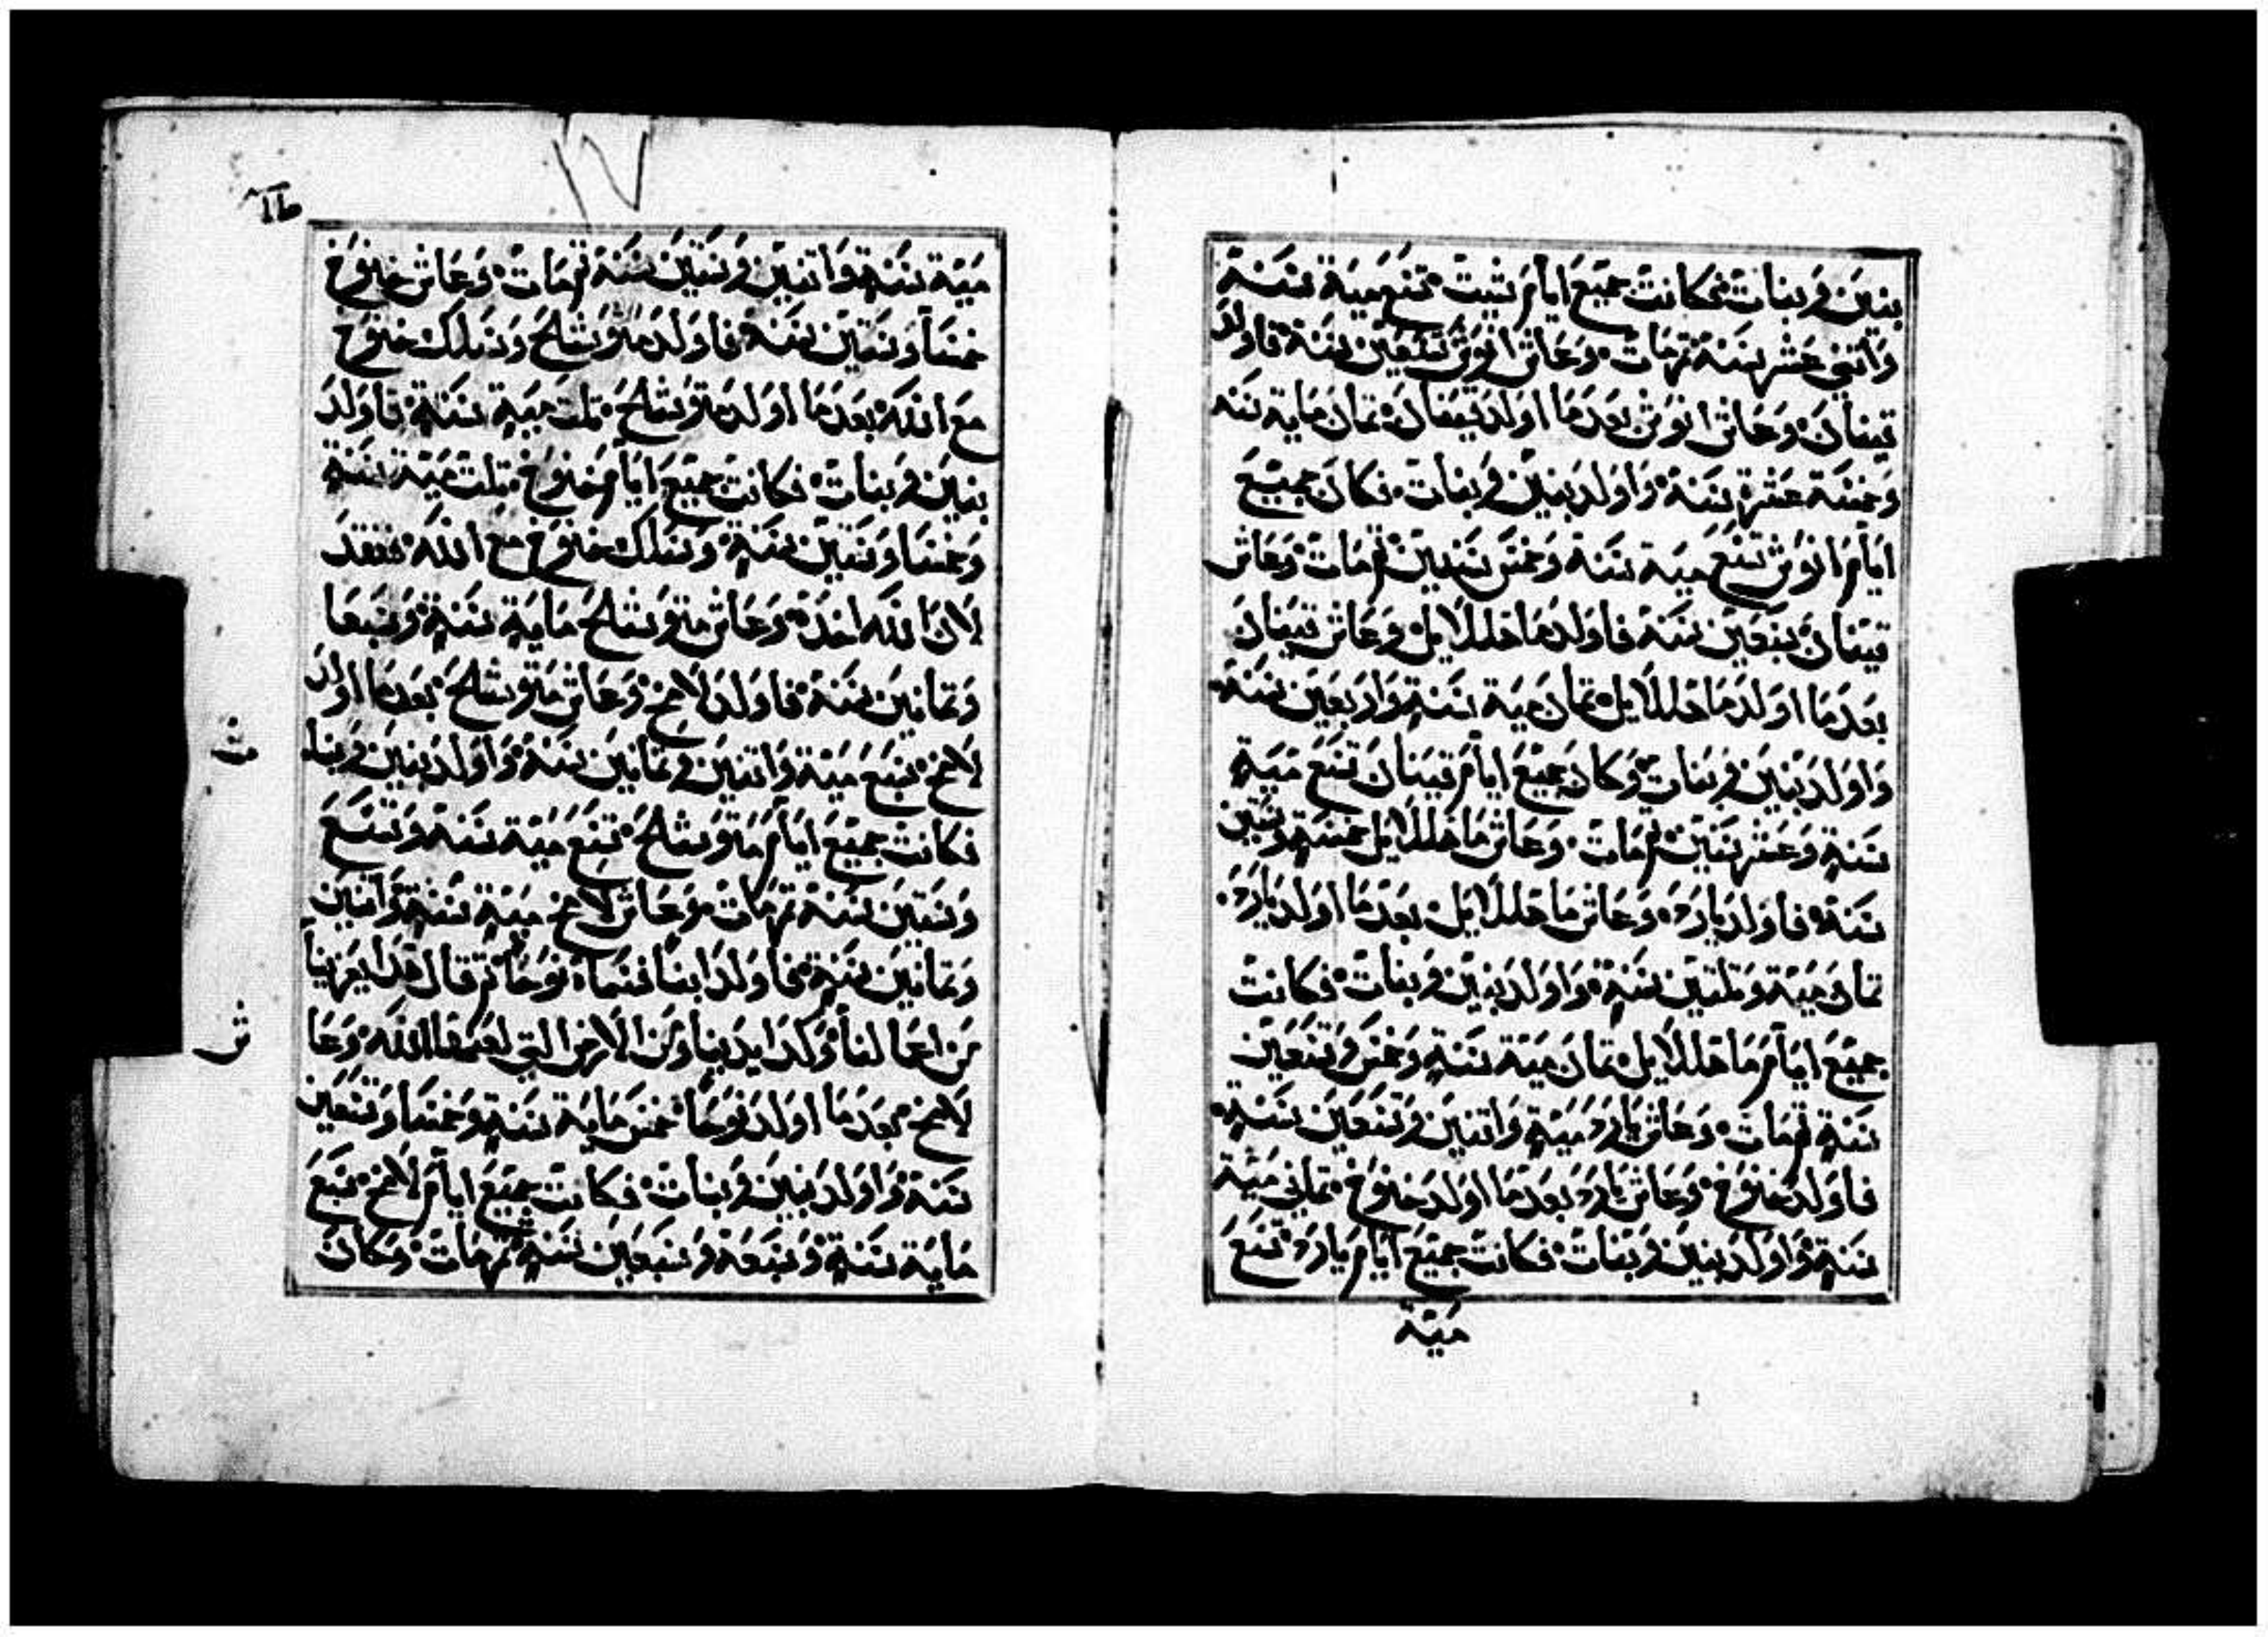 بنين وبنات فكانت جميع ايام شيت تسع مية سنة
واتني عشر سنة تم مات وعاش انوش تسعين سنة فاولد
قينان وعاش انوش بعدما اولد قينان تمان ماية سنه
وخمسة عشرة سنة واولد بنين وبنات فكان جميع
ايام انوش تسع مية سنة وخمس سنين تم مات وعاش
قينان سبعين سنة فاولد ماهللالايل وعاش قينان
بعدما اولد ماهللالايل تمان مية سنة واربعين سنة
واولد بنين وبنات وكان جميع ايام قينان تسع مية
سنة وعشر سنين تم مات وعاش ماهللالايل خمسة وستين
سنة فاولد يارد وعاش ماهللالايل بعدما اولد يارد
تمان مية وتلتين سنة واولد بنين وبنات فكانت
جميع ايام ماهللالايل تمان مية سنة وخمس وتسعين
سنة تم مات وعاش يارد مية واتنين وستين سنة
فاولد خنوخ وعاش يارد بعدما اولد خنوخ تماني مية
سنة واولد بنين وبنات فكانت جميع ايام يارد تسع
مية
مية سنة واتنين وستين سنة تم مات وعاش خنوخ
خمسا وستين سنة فاولد متوشلح وسلك خنوخ
مع الله بعدما اولد متوشلح تلت مية سنة فاولد
بنين وبنات فكانت جميع ايام خنوخ تلت مية سنة
وخمسا وستين سنة وسلك خنوخ مع الله ففقد
لان الله اخذه وعاش متوشلح ماية سنة وسبعا
وتمانين سنة فاولد لامخ وعاش متوشلح بعدما اولد
لامخ سبع مية واتنين وتمانين سنة واولد بنين وبنا
ث
فكانت جميع ايام متوشلح تسع مية سنة وتسع
وستين سنة تم مات وعاش لامخ مية سنة واتنين
وتمانين سنة فاولد ابنا فسماه نوحا تم قال هدا يعزينا
من اعمالنا وكد ايدينا ومن الارض التي لعنها الله وعا
ش
لامخ بعدما اولد نوحا خمس ماية سنة وخمسا وتسعين
سنة واولد بنين وبنات فكانت جميع ايام لامخ سبع
ماية سنة وسبعة وسبعين سنة تم مات وكان